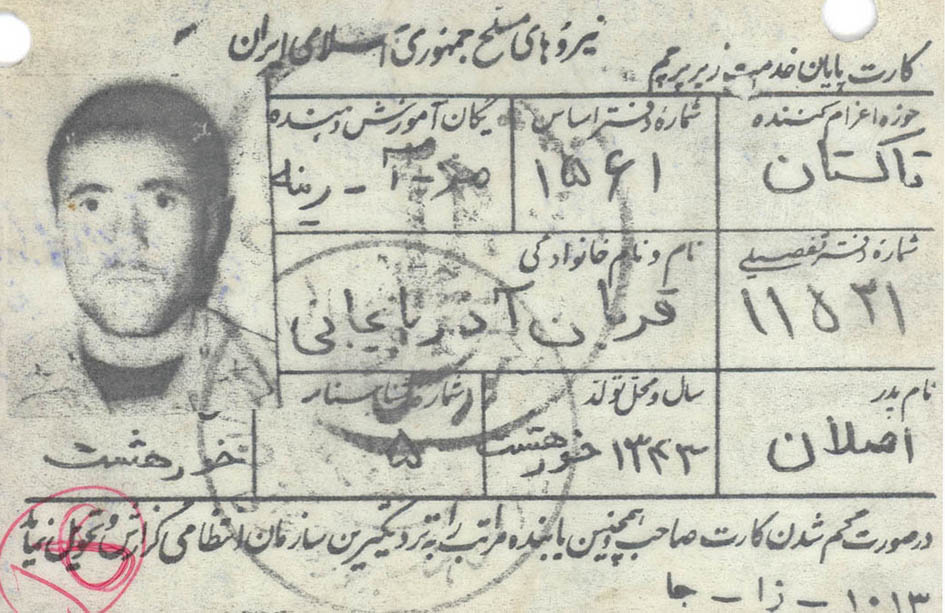 نیروهای مسلح جمهوری اسلامی ایران
کارت پایان خدمت زیر پرچم
حوزه اعزام کننده
شماره دفتر اساس
یگان آموزش دهنده
تاکستان
۱۵۶۱
۰۲-آ-رینه
شماره دفتر تفصیلی
نام و نام خانوادگی
۱۱۵۲۱
قربان آذربایجانی
نام پدر
سال و محل تولد
شماره شناسنامه
اصلان
۱۳۴۳ خورهشت
۵
خورهشت
در صورت گم شدن کارت صاحب و همچنین یابنده مراتب را به نزدیکترین سازمان انتظامی گزارش و تحویل نماید
۱۰۱۳ - زا - جا